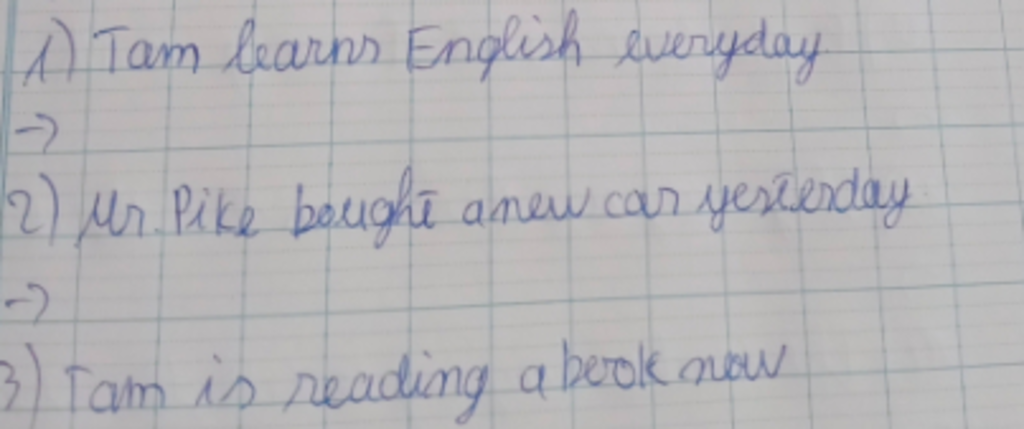 1) Tam learns English everyday
->
2) Mr. Pike bought a new car yesterday
->
3) Tam is reading a book now